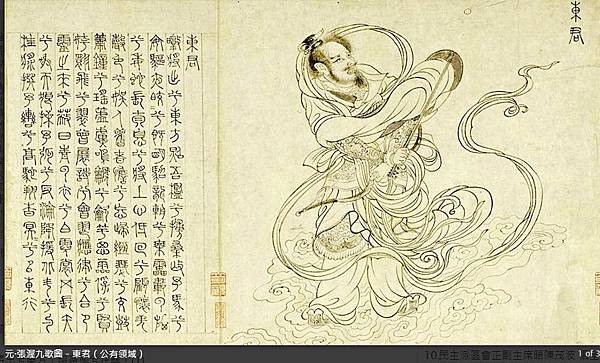 東君
東君
暾將出兮東方照吾檻兮扶桑撫余馬兮
安驅夜皎皎兮既明駕龍輈兮乘雷載雲
旗兮委蛇長太息兮將上心低佪兮顧懷羌
聲色兮娛人觀者憺兮忘歸緪瑟兮交鼓
簫鐘兮瑤簴鳴鷈兮吹竽思靈保兮賢
姱翾飛兮翠曾展詩兮會舞應律兮合節
靈之來兮蔽日青雲衣兮白霓裳舉長矢
兮射天狼操余弧兮反淪降援北斗兮酌
桂漿撰余轡兮高駝翔杳冥冥兮以東行
元·張渥九歌圖－東君（公有領域）
10民主派區會正副主席晤陳茂波
1 of 3